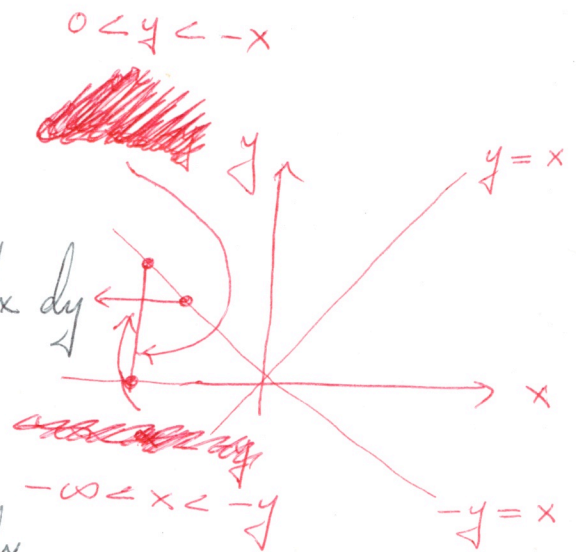 0 < y < -x
y
y = x
x dy
x
-∞ < x < -y
-y = x